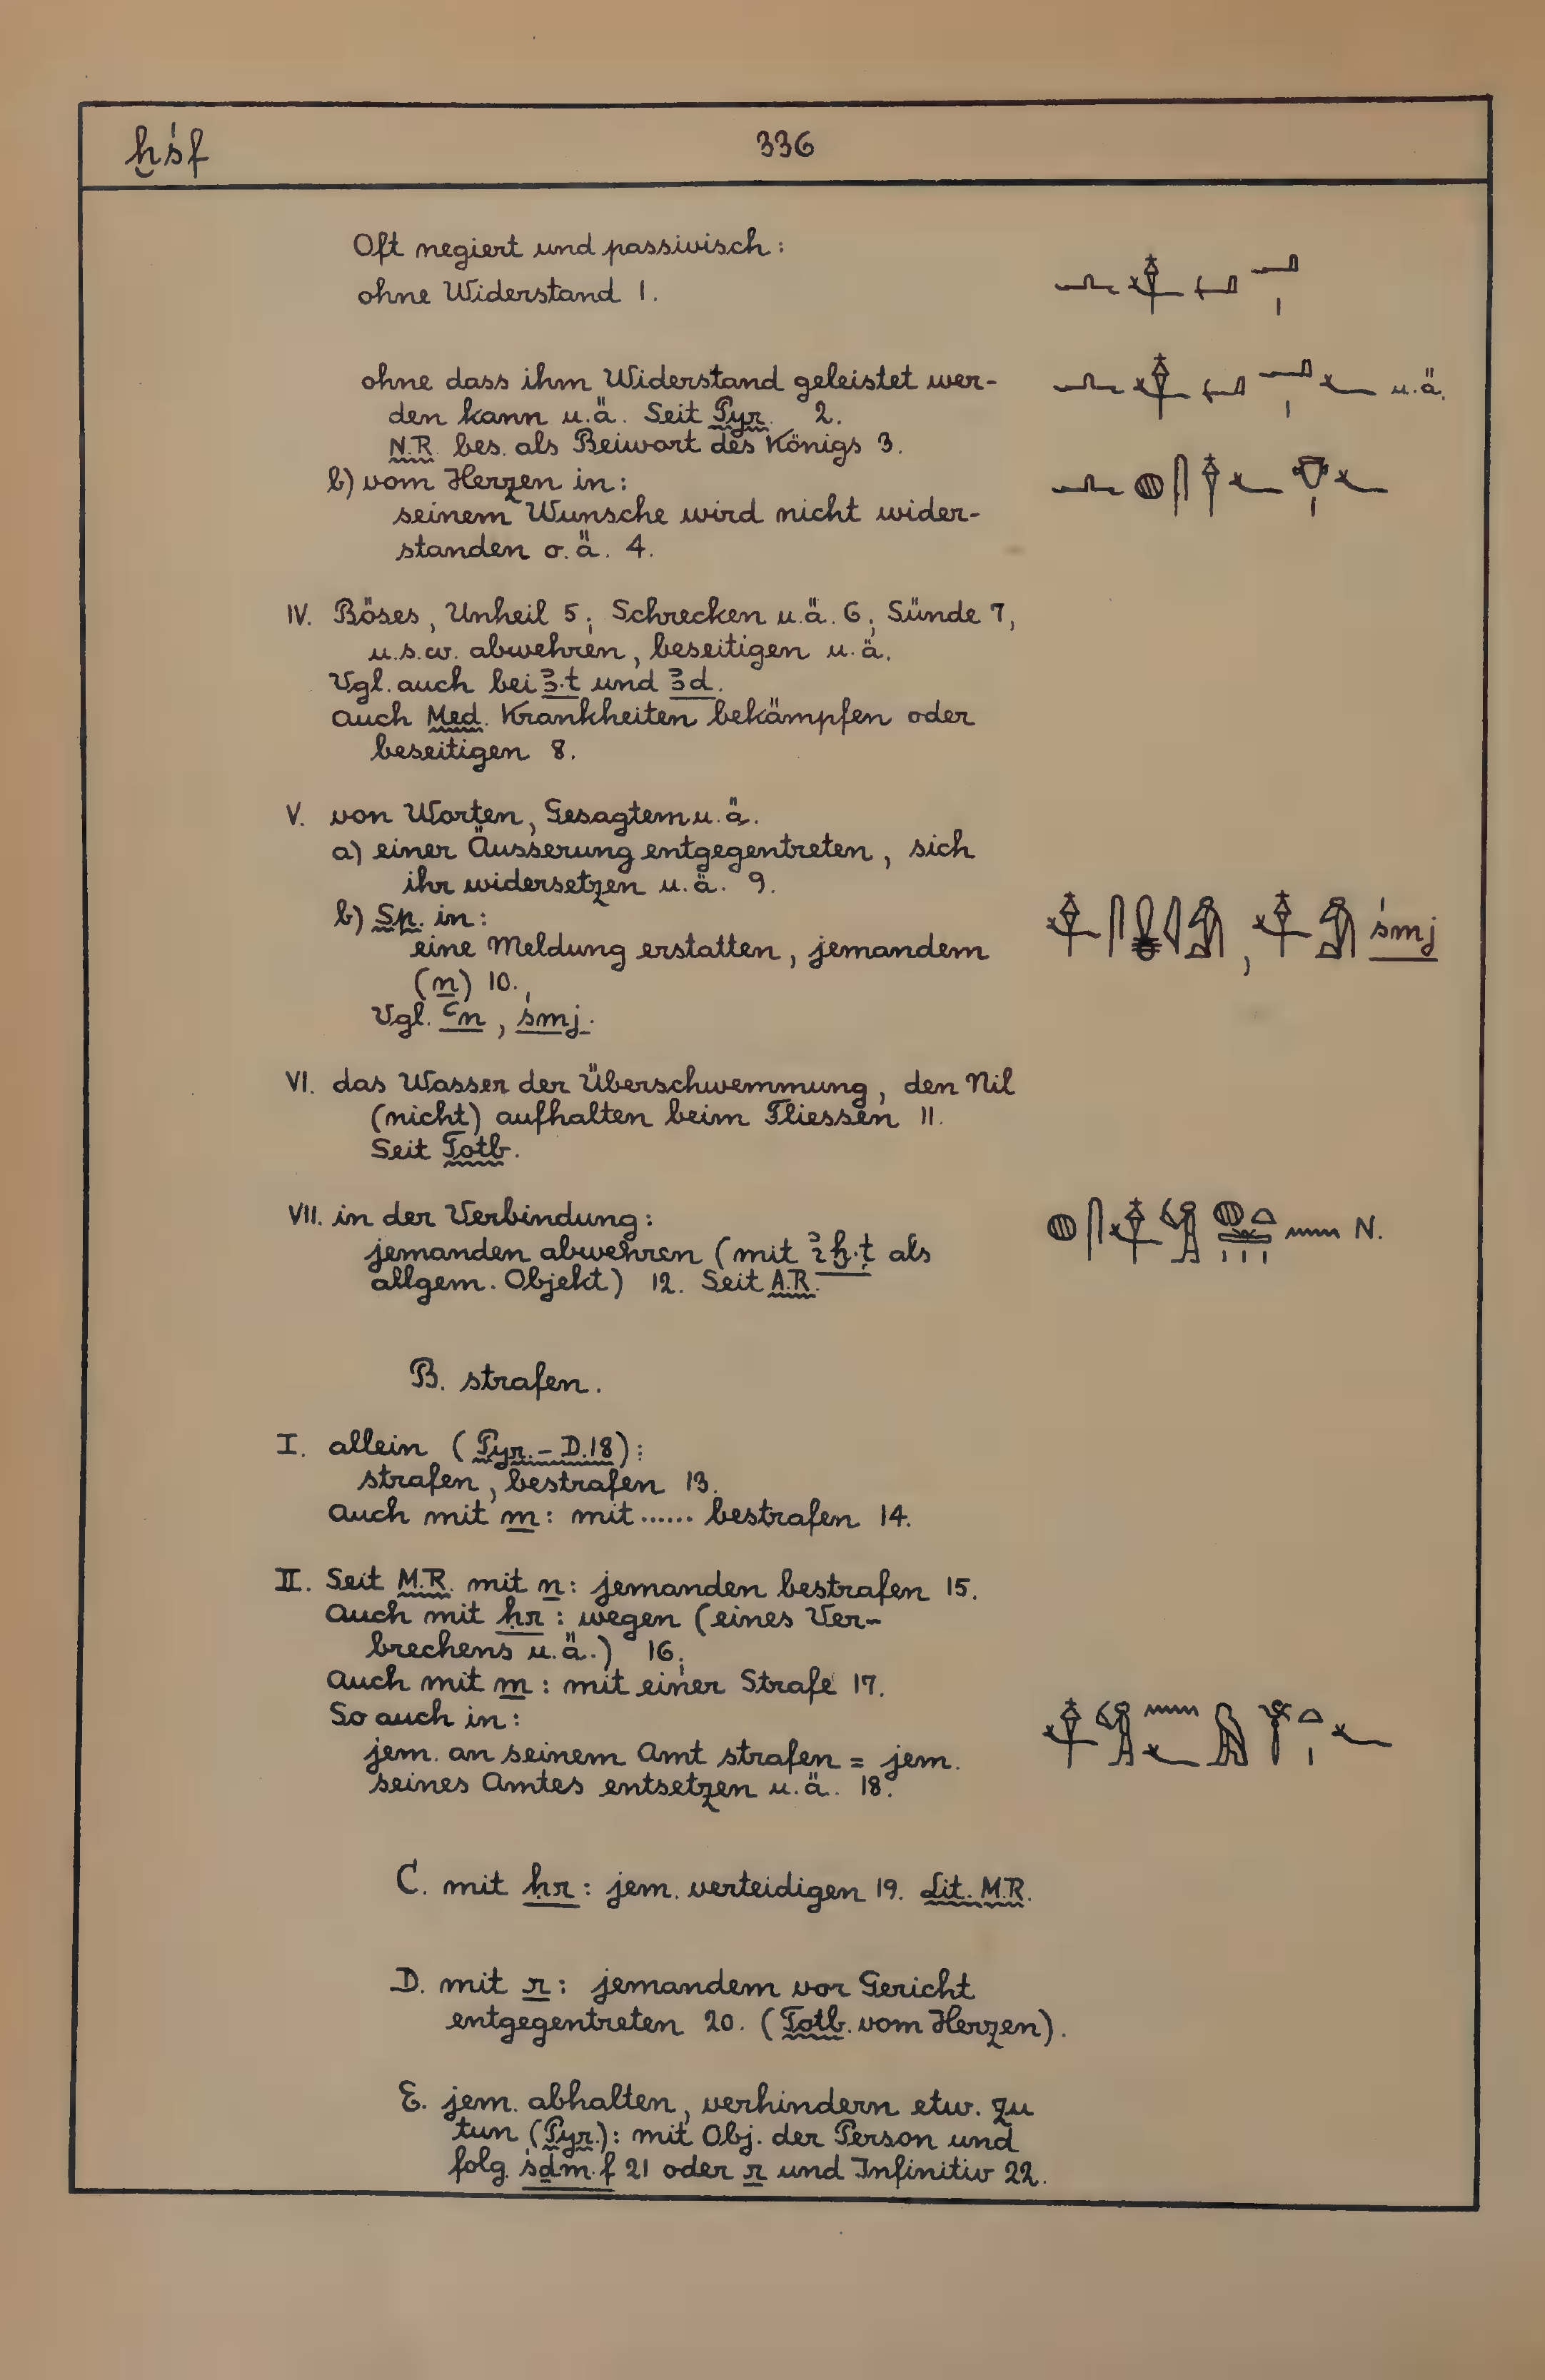 ḫśf
336
Oft negiert und passivisch:
ohne Widerstand 1.
ohne dass ihm Widerstand geleistet wer-
u.ä.
den kann u.ä. Seit Pyr. 2.
N.R. bes. als Beiwort des Königs 3.
b) vom Herzen in:
seinem Wunsche wird nicht wider-
standen o.ä. 4.
IV. Böses, Unheil 5; Schrecken u.ä. 6; Sünde 7,
u.s.w. abwehren, beseitigen u.ä.
Vgl. auch bei ꜣ.t und ꜣd.
Auch Med. Krankheiten bekämpfen oder
beseitigen 8.
V. von Worten, Gesagtem u.ä.
a) einer Äusserung entgegentreten, sich
ihr widersetzen u.ä. 9.
b) Sp. in:
, śmj
eine Meldung erstatten, jemandem
(n) 10.
Vgl. ꜥn, śmj.
VI. das Wasser der Überschwemmung, den Nil
(nicht) aufhalten beim Fliessen 11.
Seit Totb.
VII. in der Verbindung:
N.
jemanden abwehren (mit als
allgem. Objekt) 12. Seit A.R.
B. strafen.
I. allein (Pyr. - D.18):
strafen, bestrafen 13.
Auch mit m: mit ...... bestrafen 14.
II. Seit M.R. mit n: jemanden bestrafen 15.
Auch mit ḥr: wegen (eines Ver-
brechens u.ä.) 16;
Auch mit m: mit einer Strafe 17.
So auch in:
jem. an seinem Amt strafen = jem.
seines Amtes entsetzen u.ä. 18.
C. mit ḥr: jem. verteidigen 19. Lit. M.R.
D. mit r: jemandem vor Gericht
entgegentreten 20. (Totb. vom Herzen).
E. jem. abhalten, verhindern etw. zu
tun (Pyr.): mit Obj. der Person und
folg. śḏm.f 21 oder r und Infinitiv 22.